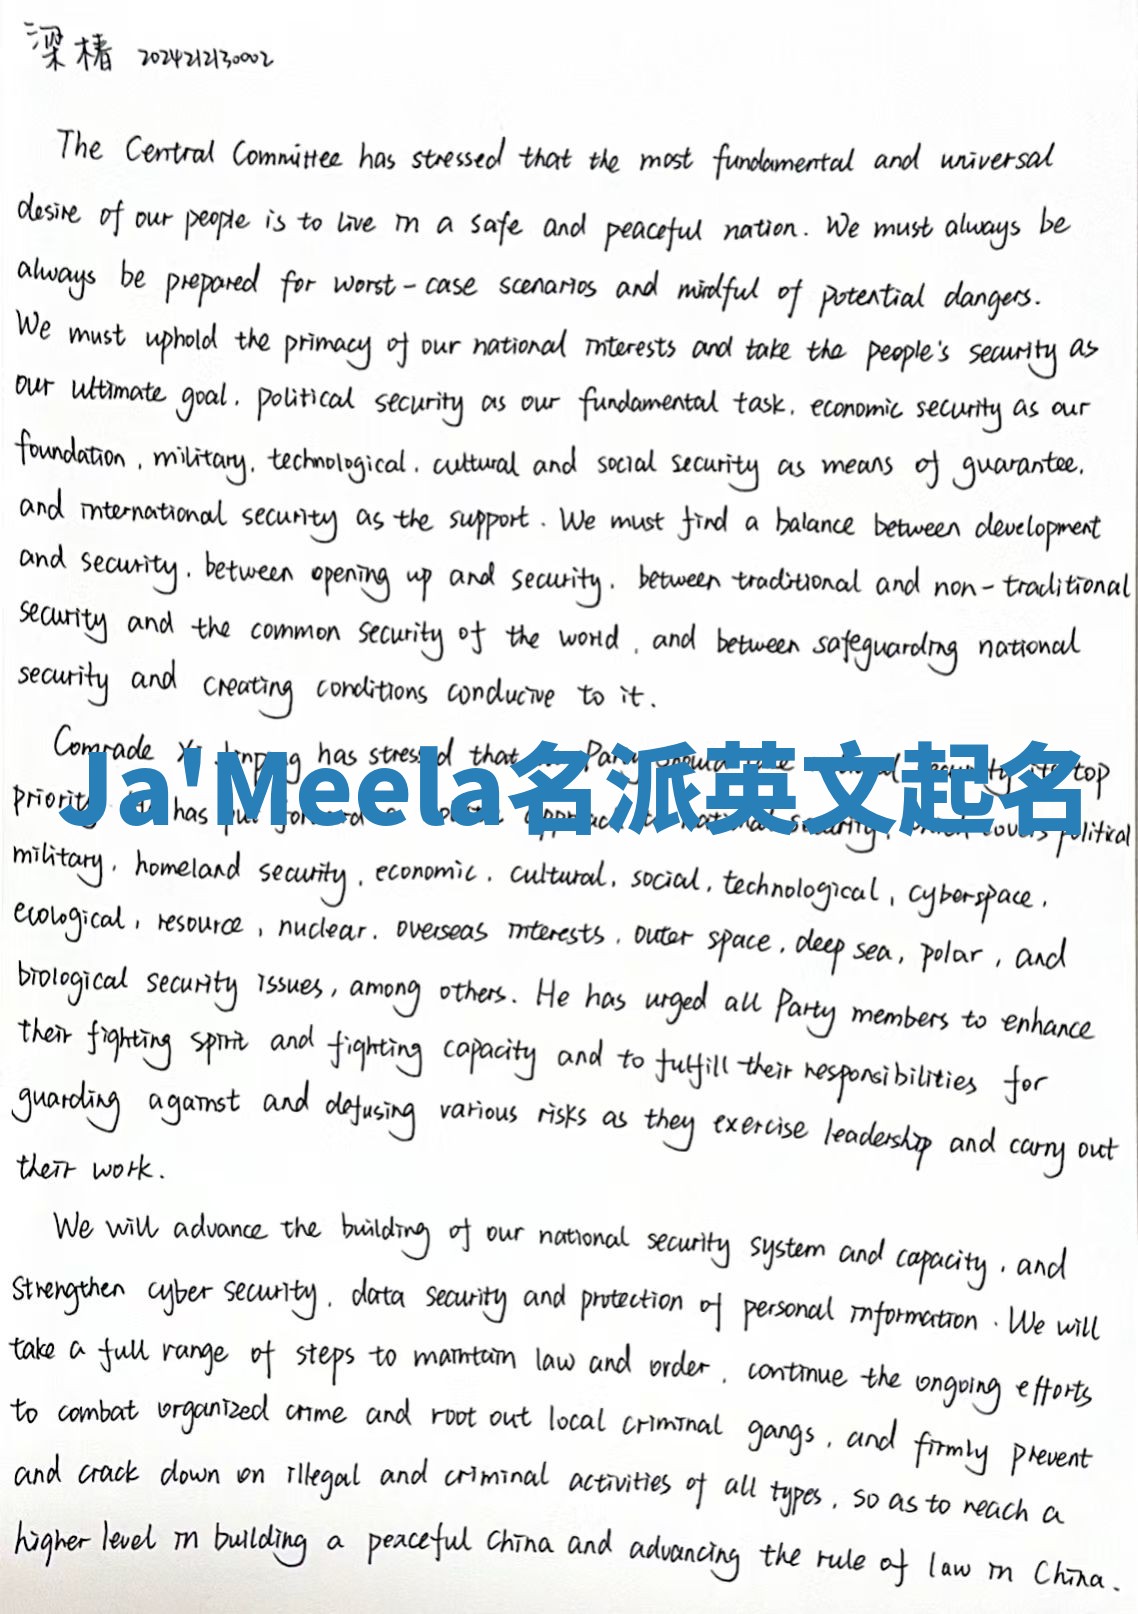 梁椿 2024212130002
The Central Committee has stressed that the most fundamental and universal
desire of our people is to live in a safe and peaceful nation. We must always be
always be prepared for worst-case scenarios and mindful of potential dangers.
We must uphold the primacy of our national interests and take the people's security as
our ultimate goal, political security as our fundamental task, economic security as our
foundation, military, technological, cultural and social security as means of guarantee,
and international security as the support. We must find a balance between development
and security, between opening up and security, between traditional and non-traditional
security and the common security of the world, and between safeguarding national
security and creating conditions conducive to it.
Comrade Xi Jinping has stressed that Party should security its top
Ja'Meela名派英文起名
priority has put forward a approach to national security, which covers political
military, homeland security, economic, cultural, social, technological, cyberspace,
ecological, resource, nuclear, overseas interests, outer space, deep sea, polar, and
biological security issues, among others. He has urged all Party members to enhance
their fighting spirit and fighting capacity and to fulfill their responsibilities for
guarding against and defusing various risks as they exercise leadership and carry out
their work.
We will advance the building of our national security system and capacity, and
strengthen cyber security, data security and protection of personal information. We will
take a full range of steps to maintain law and order, continue the ongoing efforts
to combat organized crime and root out local criminal gangs, and firmly prevent
and crack down on illegal and criminal activities of all types, so as to reach a
higher level in building a peaceful China and advancing the rule of law in China.